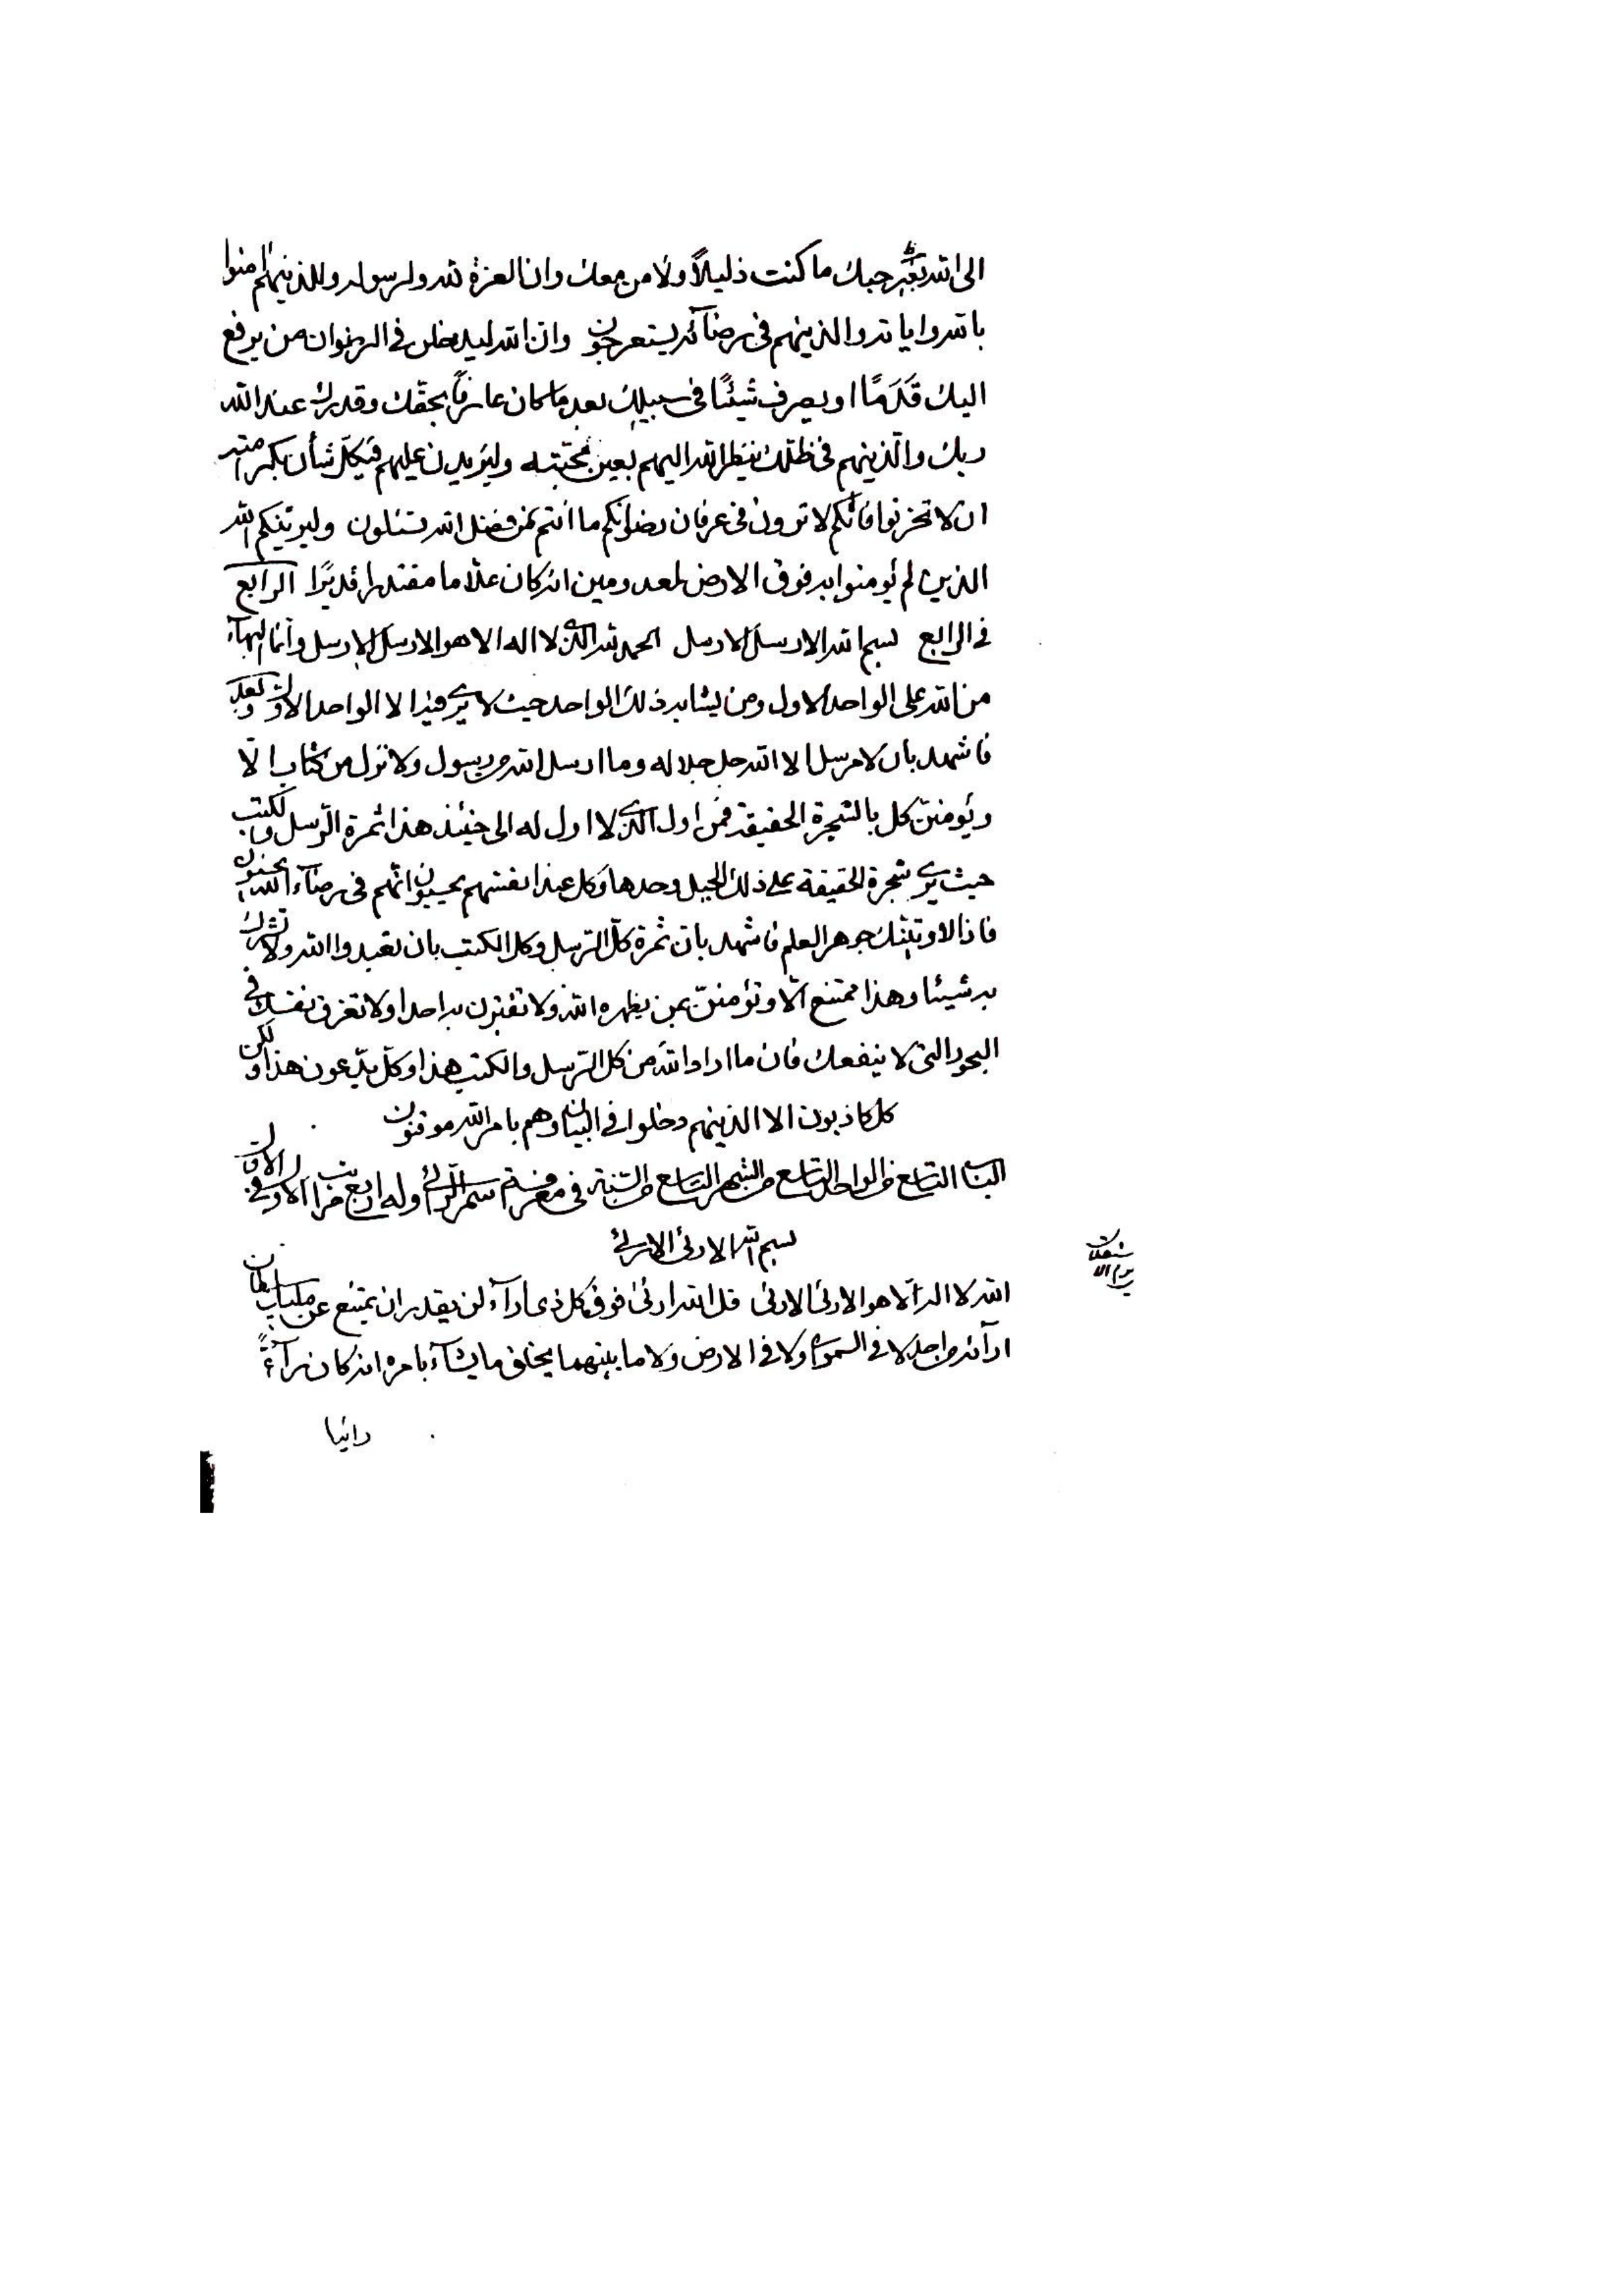 الى الله بعز حبك ما كنت ذليلاً ولا من معك وان العزة لله ولرسوله وللذينهم امنوا
بالله واياته والذينهم فى رضآئه يستعرجون وان الله ليدخلن فى الرضوان من يرفع
اليك قَدَمًا او يصرف شيئًا فى سبيلك بعد ما كان عارفاً بحقك وقدرك عند الله
ربك والذينهم فى ظلك ينظر الله اليهم بعين محبته وليزيدن عليهم فيكل شأن بكم
ان لا تحزنوا فانكم لا ترون فى عرفان رضوانكم ما انتم من فضل الله تسئلون وليرثينكم الله
الذين لم يؤمنوا به فوق الارض لمعدومين انه كان علاما مقتدرا قديرًا الرابع
فى الرابع بسم الله الارسل الارسل الحمد لله الذى لا اله الا هو الارسل الارسل وانما البهآء
من الله على الواحد الاول ومن يشابه ذلك الواحد حيث لا يرى فيه الا الواحد الاول وبعد
فاشهد بان لا مرسل الا الله جل جلاله وما ارسل الله من رسول ولا نزل من كتاب الّا
ويؤمننّ كل بالشجرة الحقيقة فمن اول الذى لا اول له الى حينئذ هذا ثمرة الرّسل والكتب
حيث يرى شجرة الحقيقة على ذلك الجبل وحدها وكل عند انفسهم يحسبون انهم فى رضآء الله يحسنون
فاذا لاوتينّك جوهر العلم فاشهد بان ثمرة كلّ الرّسل وكل الكتب بان تعبدوا الله ولا تشرك
به شيئا وهذا ممتنع الّا وتؤمننّ بمن يظهره الله ولا تقترن به احدا ولا تغرق نفسك فى
البحور التى لا ينفعك فان ما اراد الله من كل الرّسل والكتب هذا وكلّ يدّعون هذا ولكن
كل كاذبون الا الذينهم دخلوا فى البيان وهم بامر الله موقنون
الباب التاسع من الواحد التاسع من الشهر التاسع من السّنة فى معرفة اسم الرائى وله اربع مراتب الاول فى الاول
بسم الله الارئى الارئى
الله لا اله الّا هو الارئى الارئى قل الله ارئى فوق كل ذى ارآء لن يقدر ان يمتنع عن مليك سلطان
ارآئه من احد لا فى السموات ولا فى الارض ولا ما بينهما يخلق ما يشآء بامره انه كان رآءً
رائيا